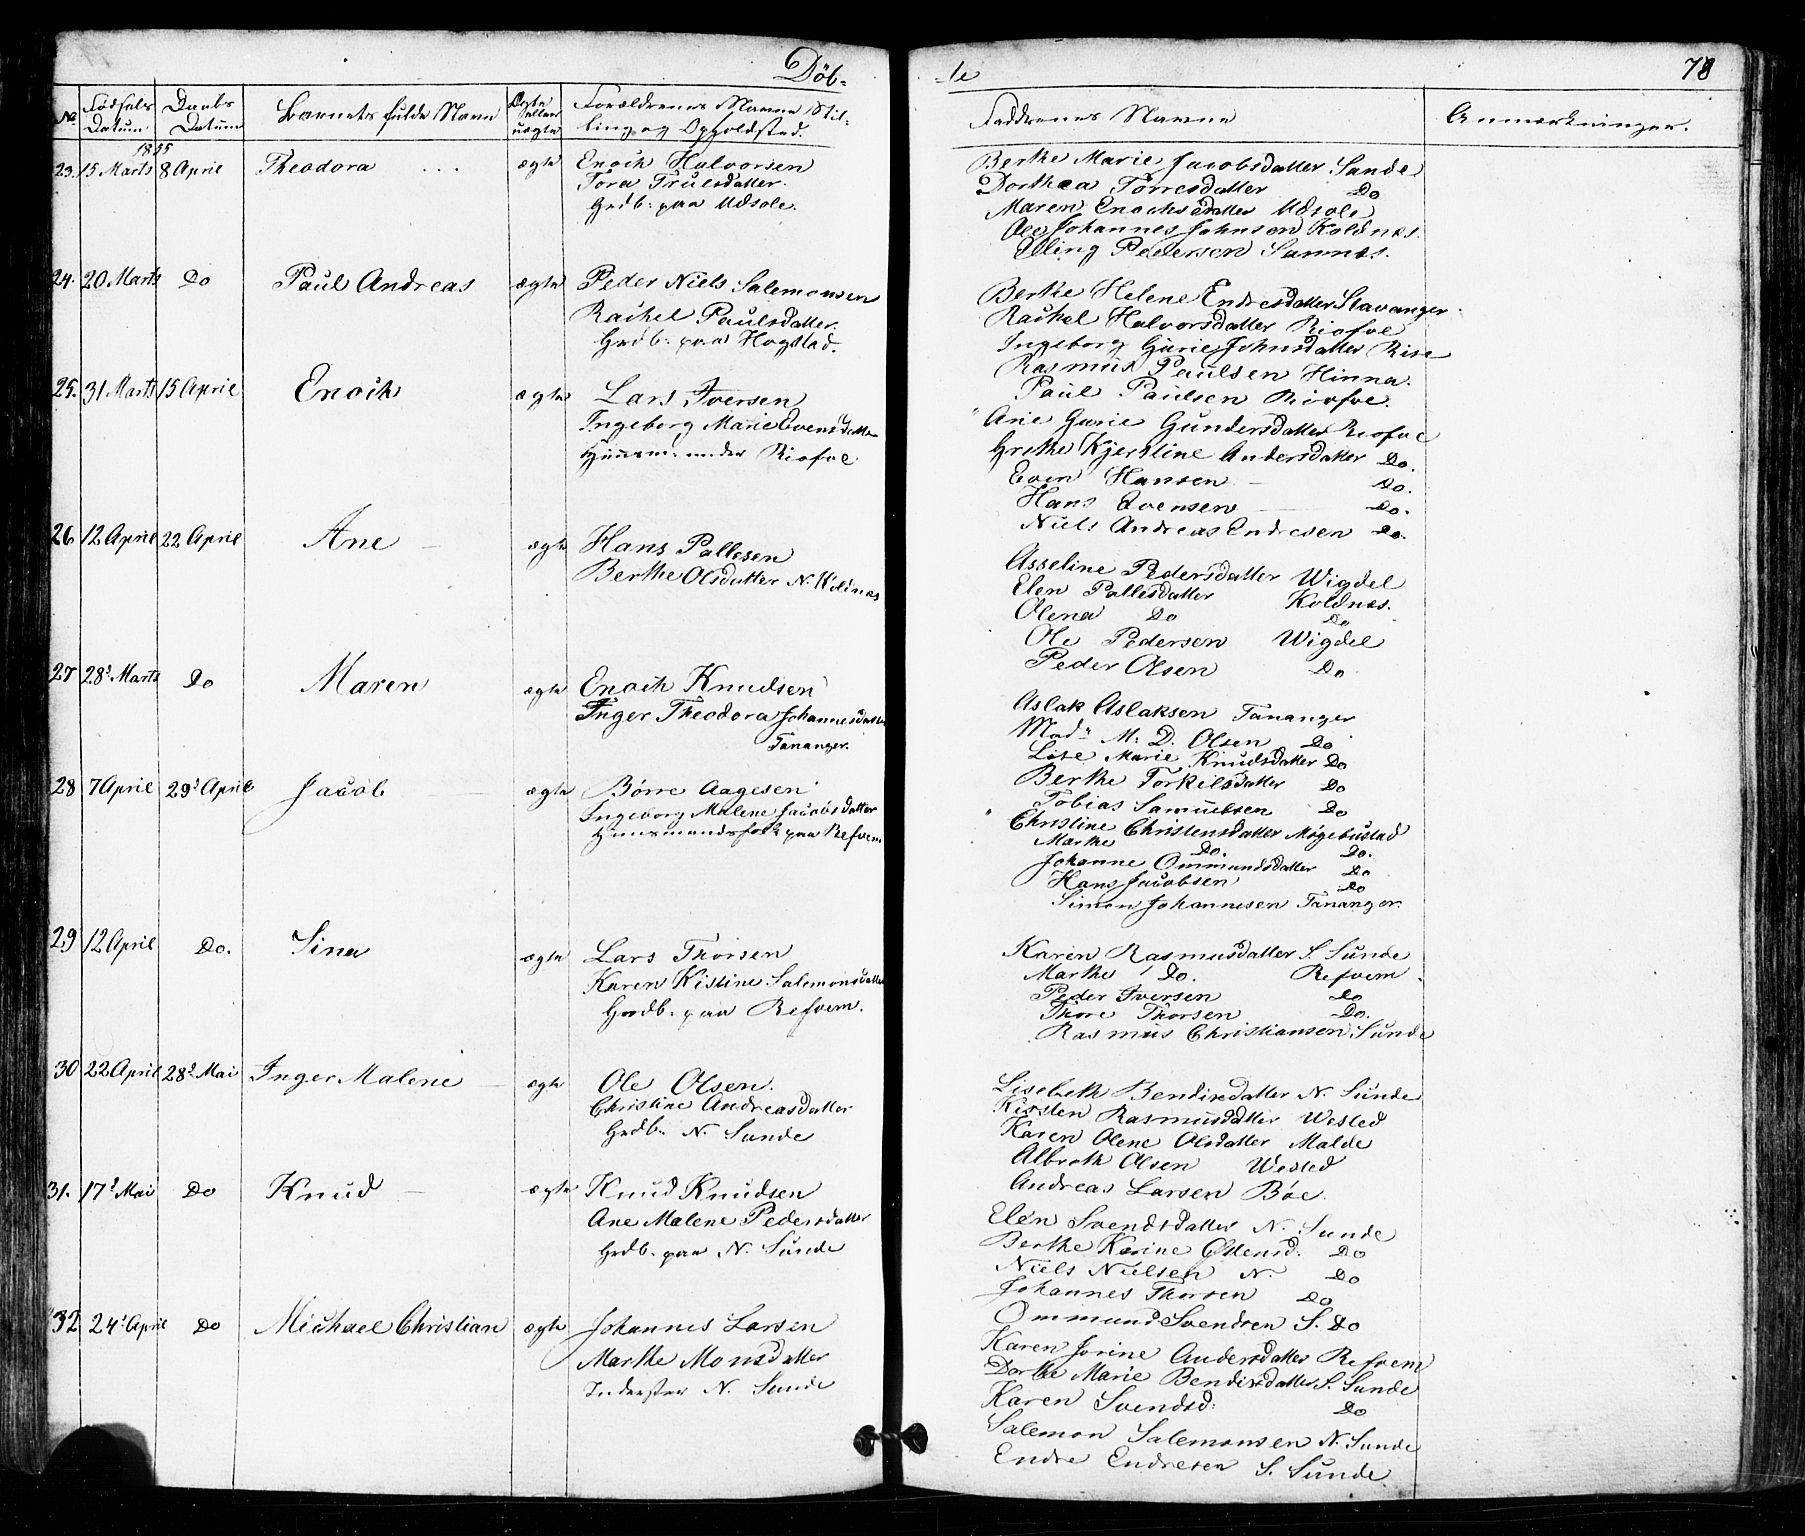 Døb-
te
78
No
Fødsels Datum
Daabs Datum
Barnets fulde Navn
Ægte eller uægte
Forældrenes Navne Stil-
ling og Opholdsted.
Faddrenes Navne
Anmærkninger.
1845
23. 15 Marts 8 April Theodora ægte Enoch Halvorsen
Tora Trulsdatter
Grdb: paa Udsole.
Berthe Marie Jacobsdatter Sunde
Dorthea Torresdatter Do
Maren Enochsdatter Udsole
Ole Johannes Johnsen Koldnæs.
Elling Pedersen Sannæs.
24. 20 Marts Do Paul Andreas ægte Peder Niels Salemonsen
Rachel Paulsdatter
Grdb: paa Hogstad.
Berthe Helene Endresdatter Stavanger
Rachel Halvorsdatter Riofve
Ingeborg Gurie Johnsdatter Rise
Rasmus Paulsen Hinna.
Paul Paulsen Riofve.
25. 31 Marts 15 April Enoch ægte Lars Iversen
Ingeborg Marie Evensdatter
Huusm. under Riofve
Ane Gurie Gundersdatter Riofve
Grethe Kjerstine Andersdatter Do.
Even Hansen Do.
Hans Evensen Do.
Niels Andreas Endresen Do.
26 12 April 22 April Ane ægte Hans Pallesen
Berthe Olsdatter N. Koldnæs
Asseline Pedersdatter Wigdel
Elen Pallesdatter Koldnæs.
Olena Do Do
Ole Pedersen Wigdel
Peder Olsen Do
27 28d Marts Do Maren ægte Enoch Knudsen
Inger Theodora Johannesdatter
Tananger.
Aslak Aslaksen Tananger
Madm M: D. Olsen Do
Lise Marie Knudsdatter Do
Berthe Torkilsdatter Do
Tobias Samuelsen Do
28 7 April 29d April Jacob ægte Børre Aagesen
Ingeborg Malene Jacobsdatter
Huusmandsfolk paa Refvem
Christine Christensdatter Møgebustad
Marthe Do. Do.
Johanne Ommundsdatter Do
Hans Jacobsen Do
Simon Johannesen Tananger.
29 12 April Do. Sina ægte Lars Thorsen
Karen Kistine Salemonsdatter
Grdb. paa Refvem.
Karen Rasmusdatter S. Sunde
Marthe Do. Refvem
Peder Iversen Do
Thore Thorsen Do.
Rasmus Christiansen Sunde
30 22 April 28d Mai Inger Malene ægte Ole Olsen.
Christine Andreasdatter
Grdb. N. Sunde
Lisebeth Bendixdatter N. Sunde
Kirsten Rasmusdatter Wested
Karen Olene Olsdatter Malde
Albreth Olsen Wested
Andreas Larsen Bøe.
31. 17d Mai Do Knud ægte Knud Knudsen
Ane Malene Pedersdatter
Grdb. paa N. Sunde
Elen Svendsdatter N. Sunde
Berthe Karine Ostensd. Do
Niels Nielsen N. Do
Johannes Thorsen Do
Ommund Svendsen S. Do
32 24d April Do Michael Christian ægte Johannes Larsen
Marthe Monsdatter
Inderster N. Sunde
Karen Jorine Andersdatter Refvem
Dorthe Marie Bendixdatter S. Sunde
Karen Svendsd. Do
Salemon Salemonsen N. Sunde
Endre Endresen S. Sunde